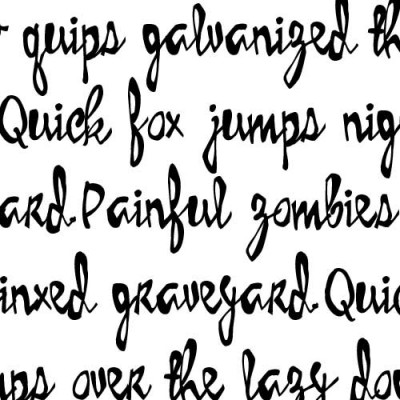 quips galvanized th
Quick fox jumps nig
ard. Painful zombies
inxed graveyard. Quic
ps over the lazy do